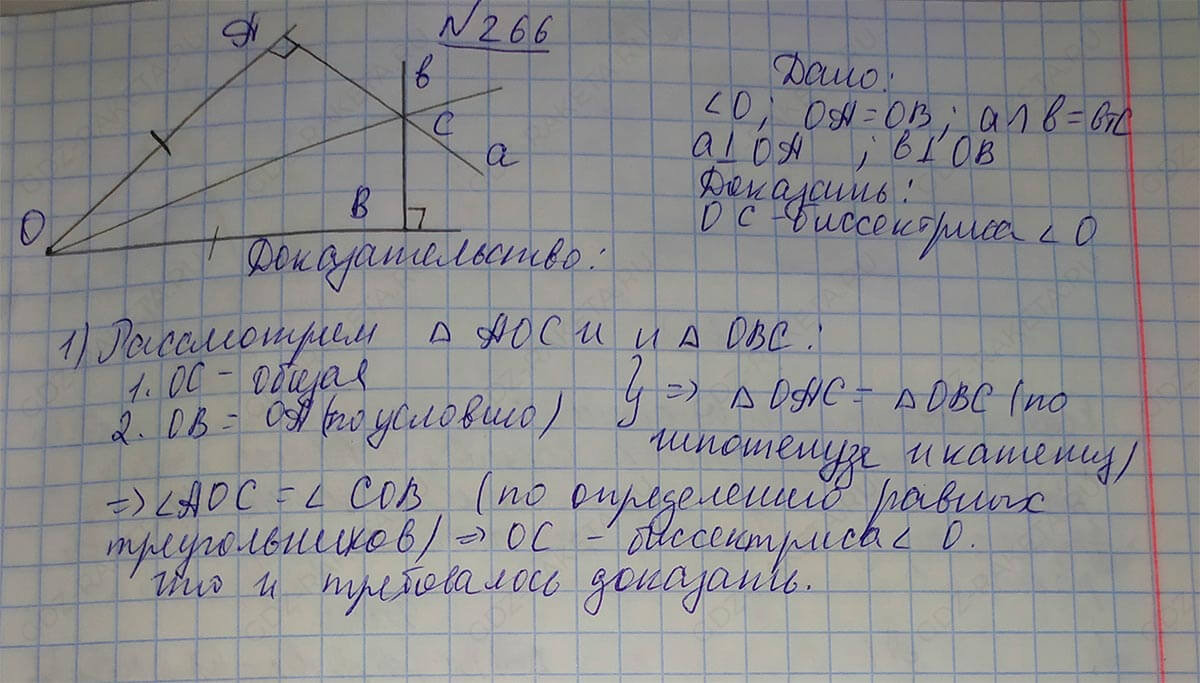 N266
A
в
C
a
B
O
Дано:
<O; OA=OB; a∩в=в т.C
a⊥OA ; в⊥OB
Доказать:
OC-биссектриса <O
Доказательство:
1) Рассмотрим △ AOC и и △ OBC:
1. OC - общая
2. OB = OA (по условию) } => △ OAC = △ OBC (по
гипотенузе и катету)
=> <AOC = < COB (по определению равных
треугольников) => OC - биссектриса < O.
что и требовалось доказать.